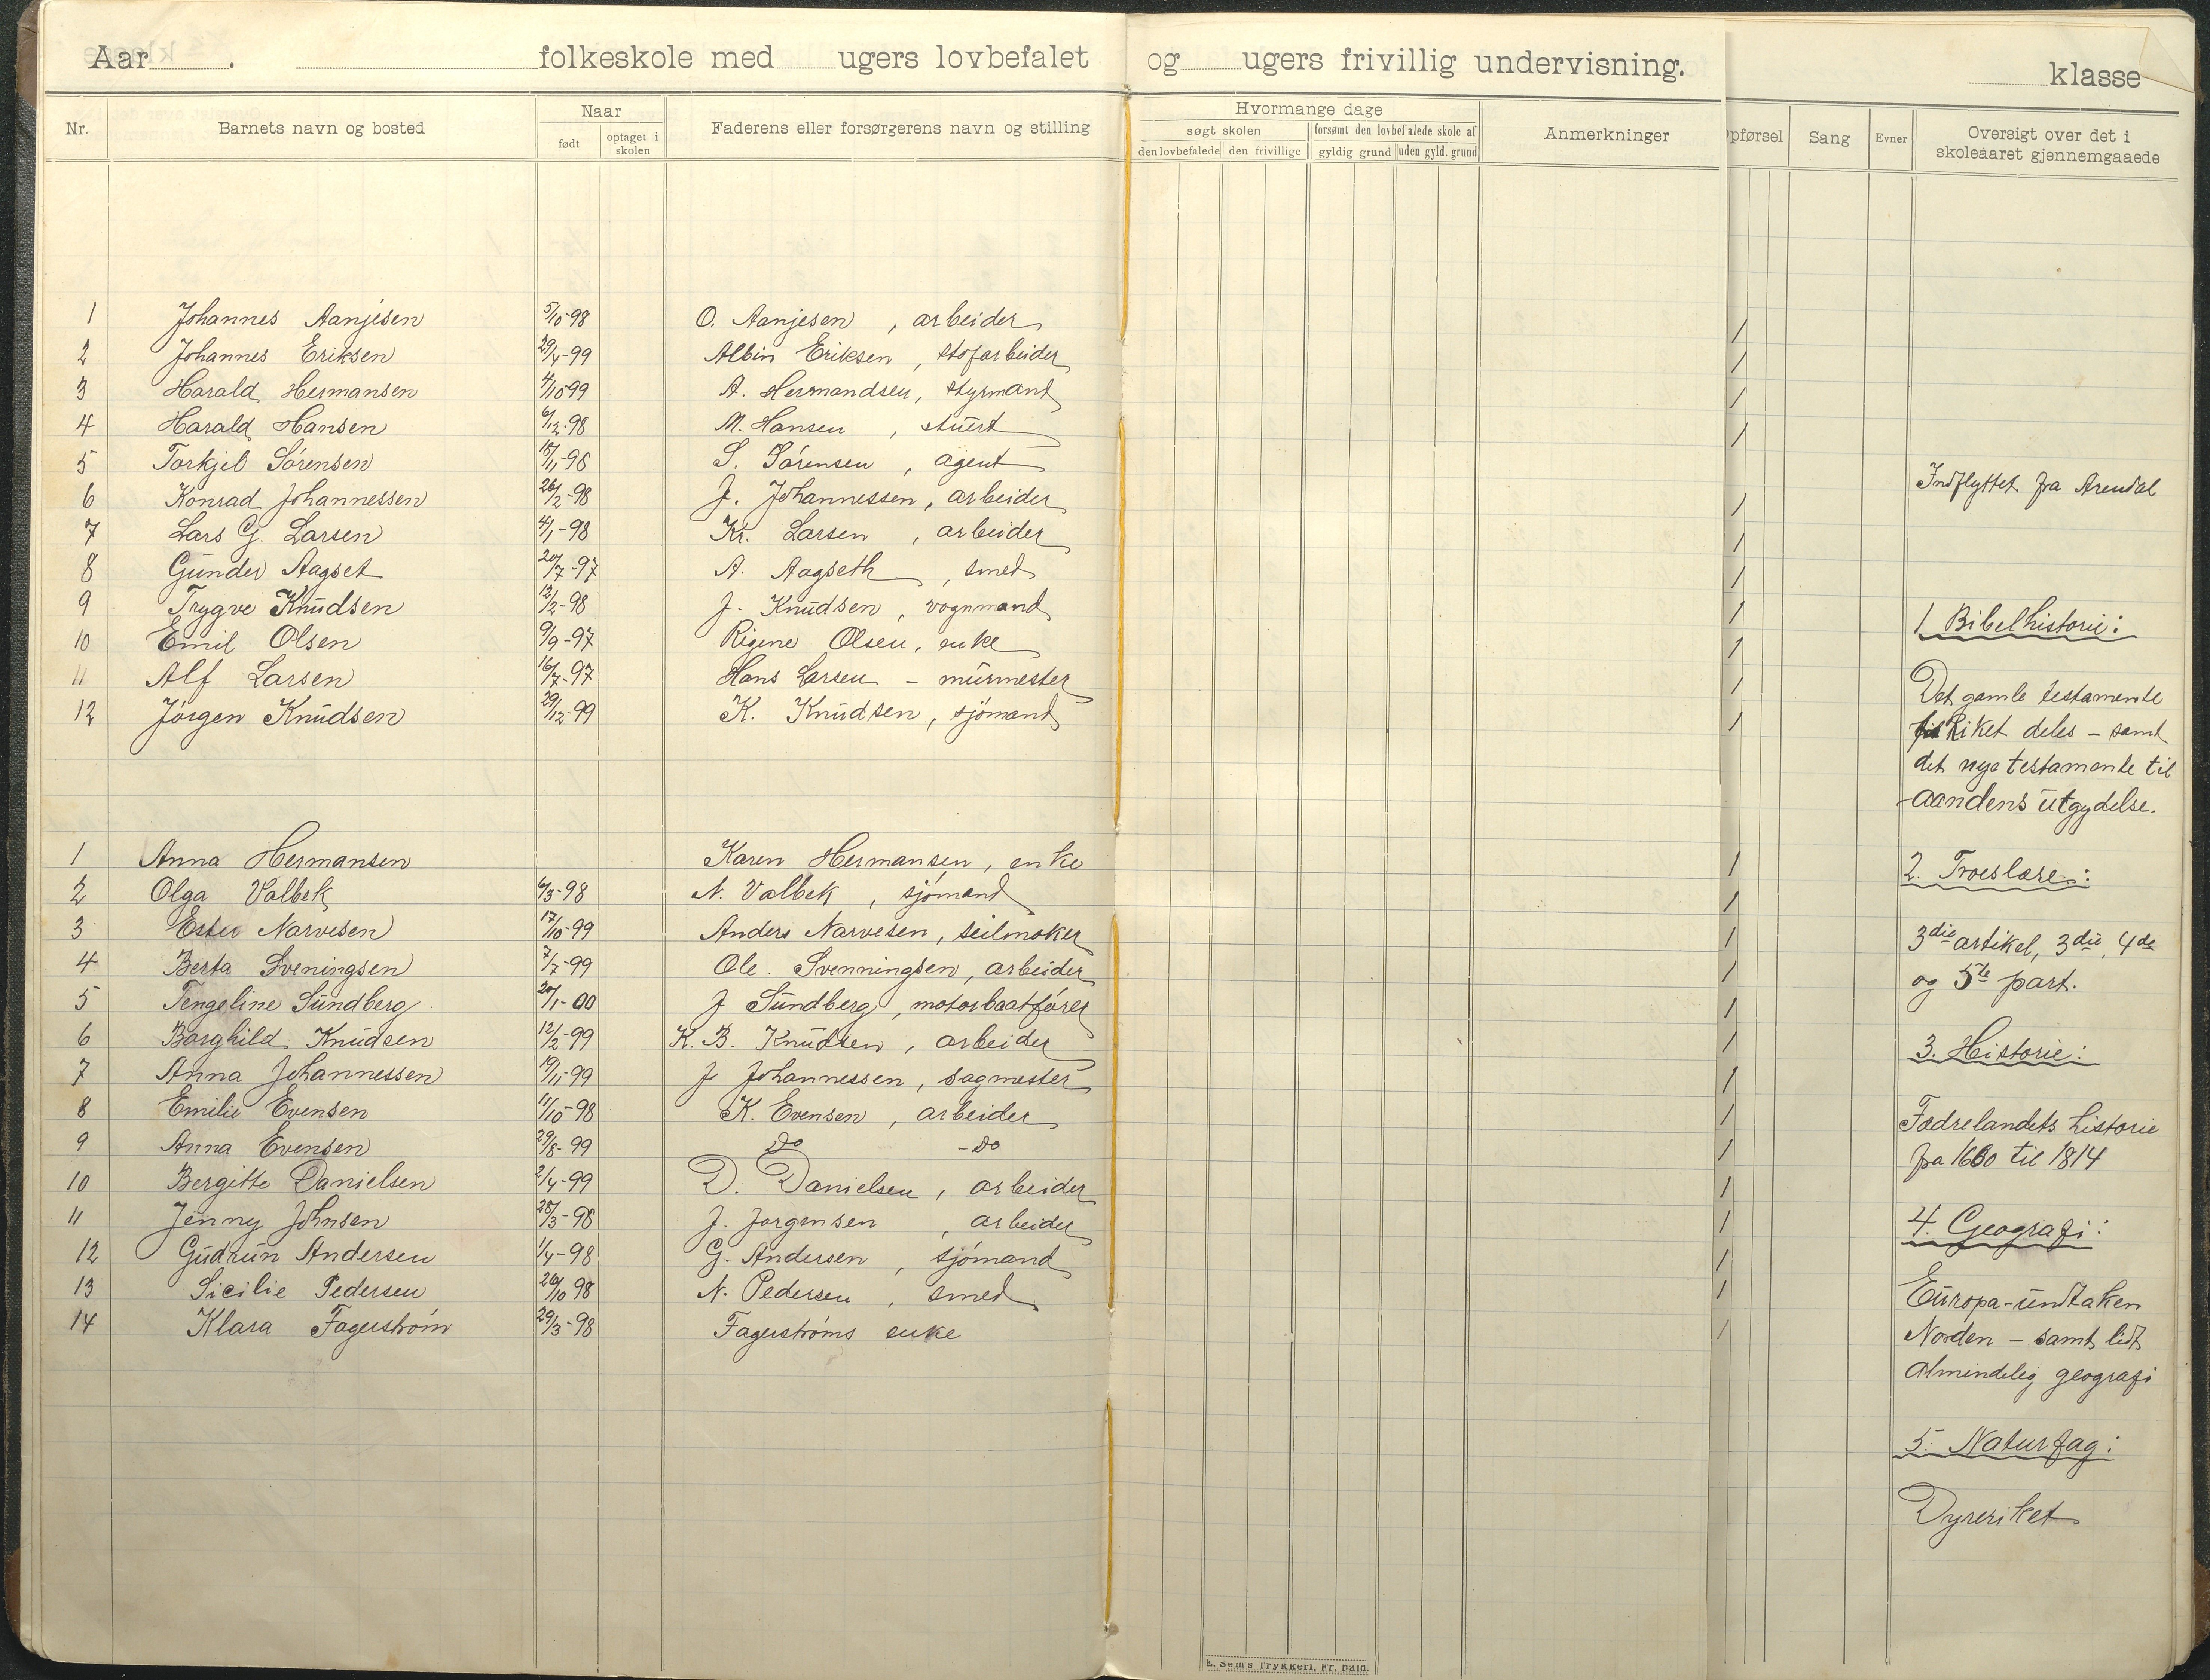 Aar . folkeskole med ugers lovbefalet og ugers frivillig undervisning. klasse
Nr. Barnets navn og bosted Naar født optaget i skolen Faderens eller forsørgerens navn og stilling
Hvormange dage
søgt skolen forsømt den lovbefalede skole af
den lovbefalede den frivillige gyldig grund uden gyld. grund
Anmerkninger
pførsel Sang Evner Oversigt over det i
skoleaaret gjennemgaaede
1 Johannes Aanjesen 5/10-98 O. Aanjesen, arbeider
2 Johannes Eriksen 29/4-99 Albin Eriksen, støfarbeider
3 Harald Hermansen 4/10 99 A. Hermandsen, styrmand
4 Harald Hansen 6/12-98 M. Hansen, stuert
5 Torkjel Sørensen 18/11-98 S. Sørensen, agent
6 Konrad Johannessen 26/2-98 J. Johannessen, arbeider
7 Lars G. Larsen 4/1-98 Kr. Larsen, arbeider
8 Gunder Aagset 20/7-97 A. Aagseth, smed
9 Trygve Knudsen 12/2-98 J. Knudsen, vognmand
10 Emil Olsen 9/9-97 Rigene Olsen, enke
11 Alf Larsen 16/7-97 Hans Larsen - murmester
12 Jørgen Knudsen 29/12-99 K. Knudsen, sjømand
1 Anna Hermansen Karen Hermansen, enke
2 Olga Valbek 6/3-98 N. Valbek, sjømand
3 Ester Narvesen 17/10-99 Anders Narvesen, seilmaker
4 Berta Sveningsen 7/7-99 Ole. Svenningsen, arbeider
5 Tengeline Sundberg 20/1-00 J Sundberg, motorbaatfører
6 Borghild Knudsen 12/2-99 K. B. Knudsen, arbeider
7 Anna Johannessen 19/11-99 J. Johannessen, sagmester
8 Emilie Evensen 11/10-98 K. Evensen, arbeider
9 Anna Evensen 29/8-99 do -do
10 Bergitte Danielsen 2/4-99 D. Danielsen, arbeider
11 Jenny Johnsen 28/3-98 J. Jørgensen, arbeider
12 Gudrun Andersen 1/4-98 G. Andersen, sjømand
13 Sicilie Pedersen 26/10 98 N. Pedersen, smed
14 Klara Fagerstrøm 29/3-98 Fagerstrøms enke
Indflyttet fra Arendal
1 Bibelhistorie:
Det gamle testamente
til Riket deles - samt
det nye testamente til
aandens utgydelse.
2. Troeslære:
3die artikel, 3die, 4de
og 5te part.
3. Historie:
Fædrelandets historie
fra 1660 til 1814
4. Geografi:
Europa - undtaken
Norden - samt lidt
almindelig geografi
5. Naturfag:
Dyreriket
E. Sem's Trykkeri, Fr. hald.